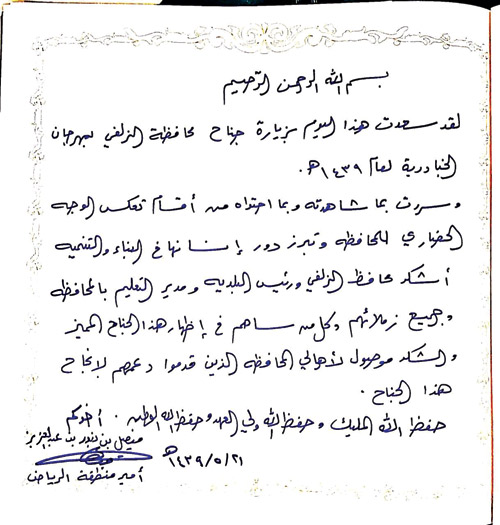 بسم الله الرحمن الرحيم
لقد سعدت هذا اليوم بزيارة جناح محافظة الزلفي بمهرجان
الجنادرية لعام ١٤٣٩هـ.
وسررت بما شاهدته وبما احتواه من أقسام تعكس الوجه
الحضاري للمحافظه وتبرز دور إنسانها في البناء والتنميه
أشكر محافظ الزلفي ورئيس البلديه ومدير التعليم بالمحافظه
وجميع زملائهم وكل من ساهم في إظهار هذا الجناح المميز
والشكر موصول لأهالي المحافظه الذين قدموا دعمهم لإنجاح
هذا الجناح.
حفظ الله المليك وحفظ الله ولي العهد وحفظ الله الوطن. أخوكم
فيصل بن بندر بن عبدالعزيز
١٤٣٩/٥/٢١هـ
أمير منطقة الرياض